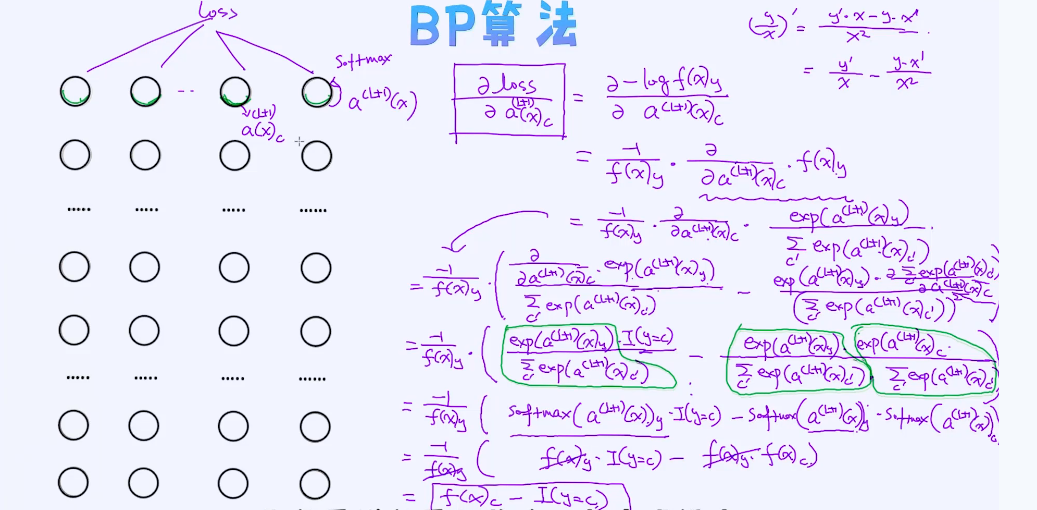 BP算法
loss
softmax
a^(L+1)(x)
a^(L+1)(x)_c
(y/x)' = (y'·x - y·x')/x²
= y'/x - y·x'/x²
∂loss/∂a^(L+1)(x)_c = ∂-log f(x)_y/∂a^(L+1)(x)_c
= -1/f(x)_y · ∂/∂a^(L+1)(x)_c · f(x)_y
= -1/f(x)_y · ∂/∂a^(L+1)(x)_c · exp(a^(L+1)(x)_y)/Σ_c' exp(a^(L+1)(x)_c')
= -1/f(x)_y · (∂/∂a^(L+1)(x)_c · exp(a^(L+1)(x)_y)/Σ_c' exp(a^(L+1)(x)_c') - exp(a^(L+1)(x)_y) · ∂Σ_c' exp(a^(L+1)(x)_c')/∂a^(L+1)(x)_c/(Σ_c' exp(a^(L+1)(x)_c'))²)
= -1/f(x)_y · (exp(a^(L+1)(x)_y)·I(y=c)/Σ_c' exp(a^(L+1)(x)_c') - exp(a^(L+1)(x)_y)/Σ_c' exp(a^(L+1)(x)_c') · exp(a^(L+1)(x)_c)/Σ_c' exp(a^(L+1)(x)_c'))
= -1/f(x)_y (softmax(a^(L+1)(x))_y · I(y=c) - softmax(a^(L+1)(x))_y · softmax(a^(L+1)(x))_c)
= -1/f(x)_y (f(x)_y · I(y=c) - f(x)_y · f(x)_c)
= f(x)_c - I(y=c)